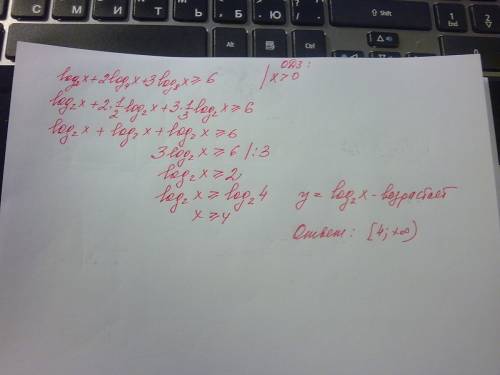 ОДЗ:
log₂x+2log₄x+3log₈x≥6 | x>0
log₂x+2·1/2log₂x+3·1/3log₂x≥6
log₂x+log₂x+log₂x≥6
3log₂x≥6 |:3
log₂x≥2
log₂x≥log₂4
y=log₂x-возрастает
x≥4
Ответ: [4;+∞)